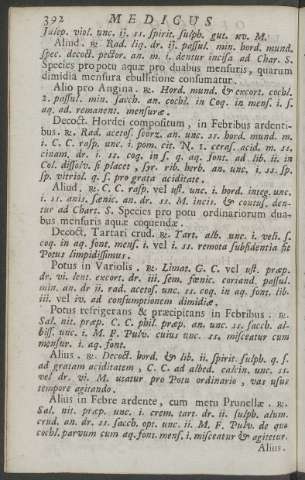 392 MEDICUS
Julep. viol. unc. ij. ss. spirit. sulph. gut. xv. M.
Aliud. ℞. Rad. liq. dr. ij. passul. min. hord. mund.
spec. decoct. pector. an. m. i. dentur incisa ad Char. S.
Species pro potu aquæ pro duabus mensuris, quarum
dimidia mensura ebullitione consumatur.
Alio pro Angina. ℞. Hord. mund. & excort. cochl.
2. passul. min. sacch. an. cochl. in Coq. in mens. i. s.
aq. ad remanent. mensuræ.
Decoct. Hordei compositum, in Febribus ardenti-
bus. ℞. Rad. acetos. scorz. an. unc. ss. hord. mund. m.
i. C. C. rasp. unc. i. pom. cit. N. 2. ceras. acid. m. ss.
cinam. dr. i. ss. coq. in s. q. aq. font. ad lib. ii. in
Col. dissolv. si placet, syr. rib. berb. an. unc. i. ss. sp.
sp. vitriol. q. s. pro grata aciditate.
Aliud. ℞. C. C. rasp. vel ust. unc. i. hord. integ. unc.
i. ss. anis. fœnic. an. dr. ss. M. incis. & contus. den-
tur ad Chart. S. Species pro potu ordinariorum dua-
bus mensuris aquæ coquendæ.
Decoct. Tartari crud. ℞. Tart. alb. unc. i. veli. s.
coq. in aq. font. mens. i. vel i. ss. remota subsidentia fit
Potus limpidissimus.
Potus in Variolis. ℞. Limat. G. C. vel ust. præp.
dr. vi. lent. excort. dr. iii. sem. fœnic. coriand. passul.
min. an. dr ii. rad. acetos. unc. ss. coq. in aq. font. lib.
iii. vel iv. ad consumptionem dimidiæ.
Potus refrigerans & præcipitans in Febribus. ℞.
Sal. nit. præp. C. C. phil. præp. an. unc. ss. sacch. al-
biss. unc. i. M. F. Pulv. cuius unc. ss. misceatur cum
mensur. i. aq. font.
Alius. ℞. Decoct. hord. & lib. ii. spirit. sulph. q. s.
ad gratam aciditatem, C. C. ad albed. calcin. unc. ss.
vel dr. vi. M. utatur pro Potu ordinario, vas usus
tempore agitando.
Alius in Febre ardente, cum metu Prunellæ. ℞.
Sal. nit. præp. unc. i. crem. tart. dr. ii. sulph. alum.
crud. an. dr. ss. sacch. opt. unc. ii. M. F. Pulv. de quo
cochl. parvum cum aq. font. mens. i. misceatur & agitetur.
Alius.